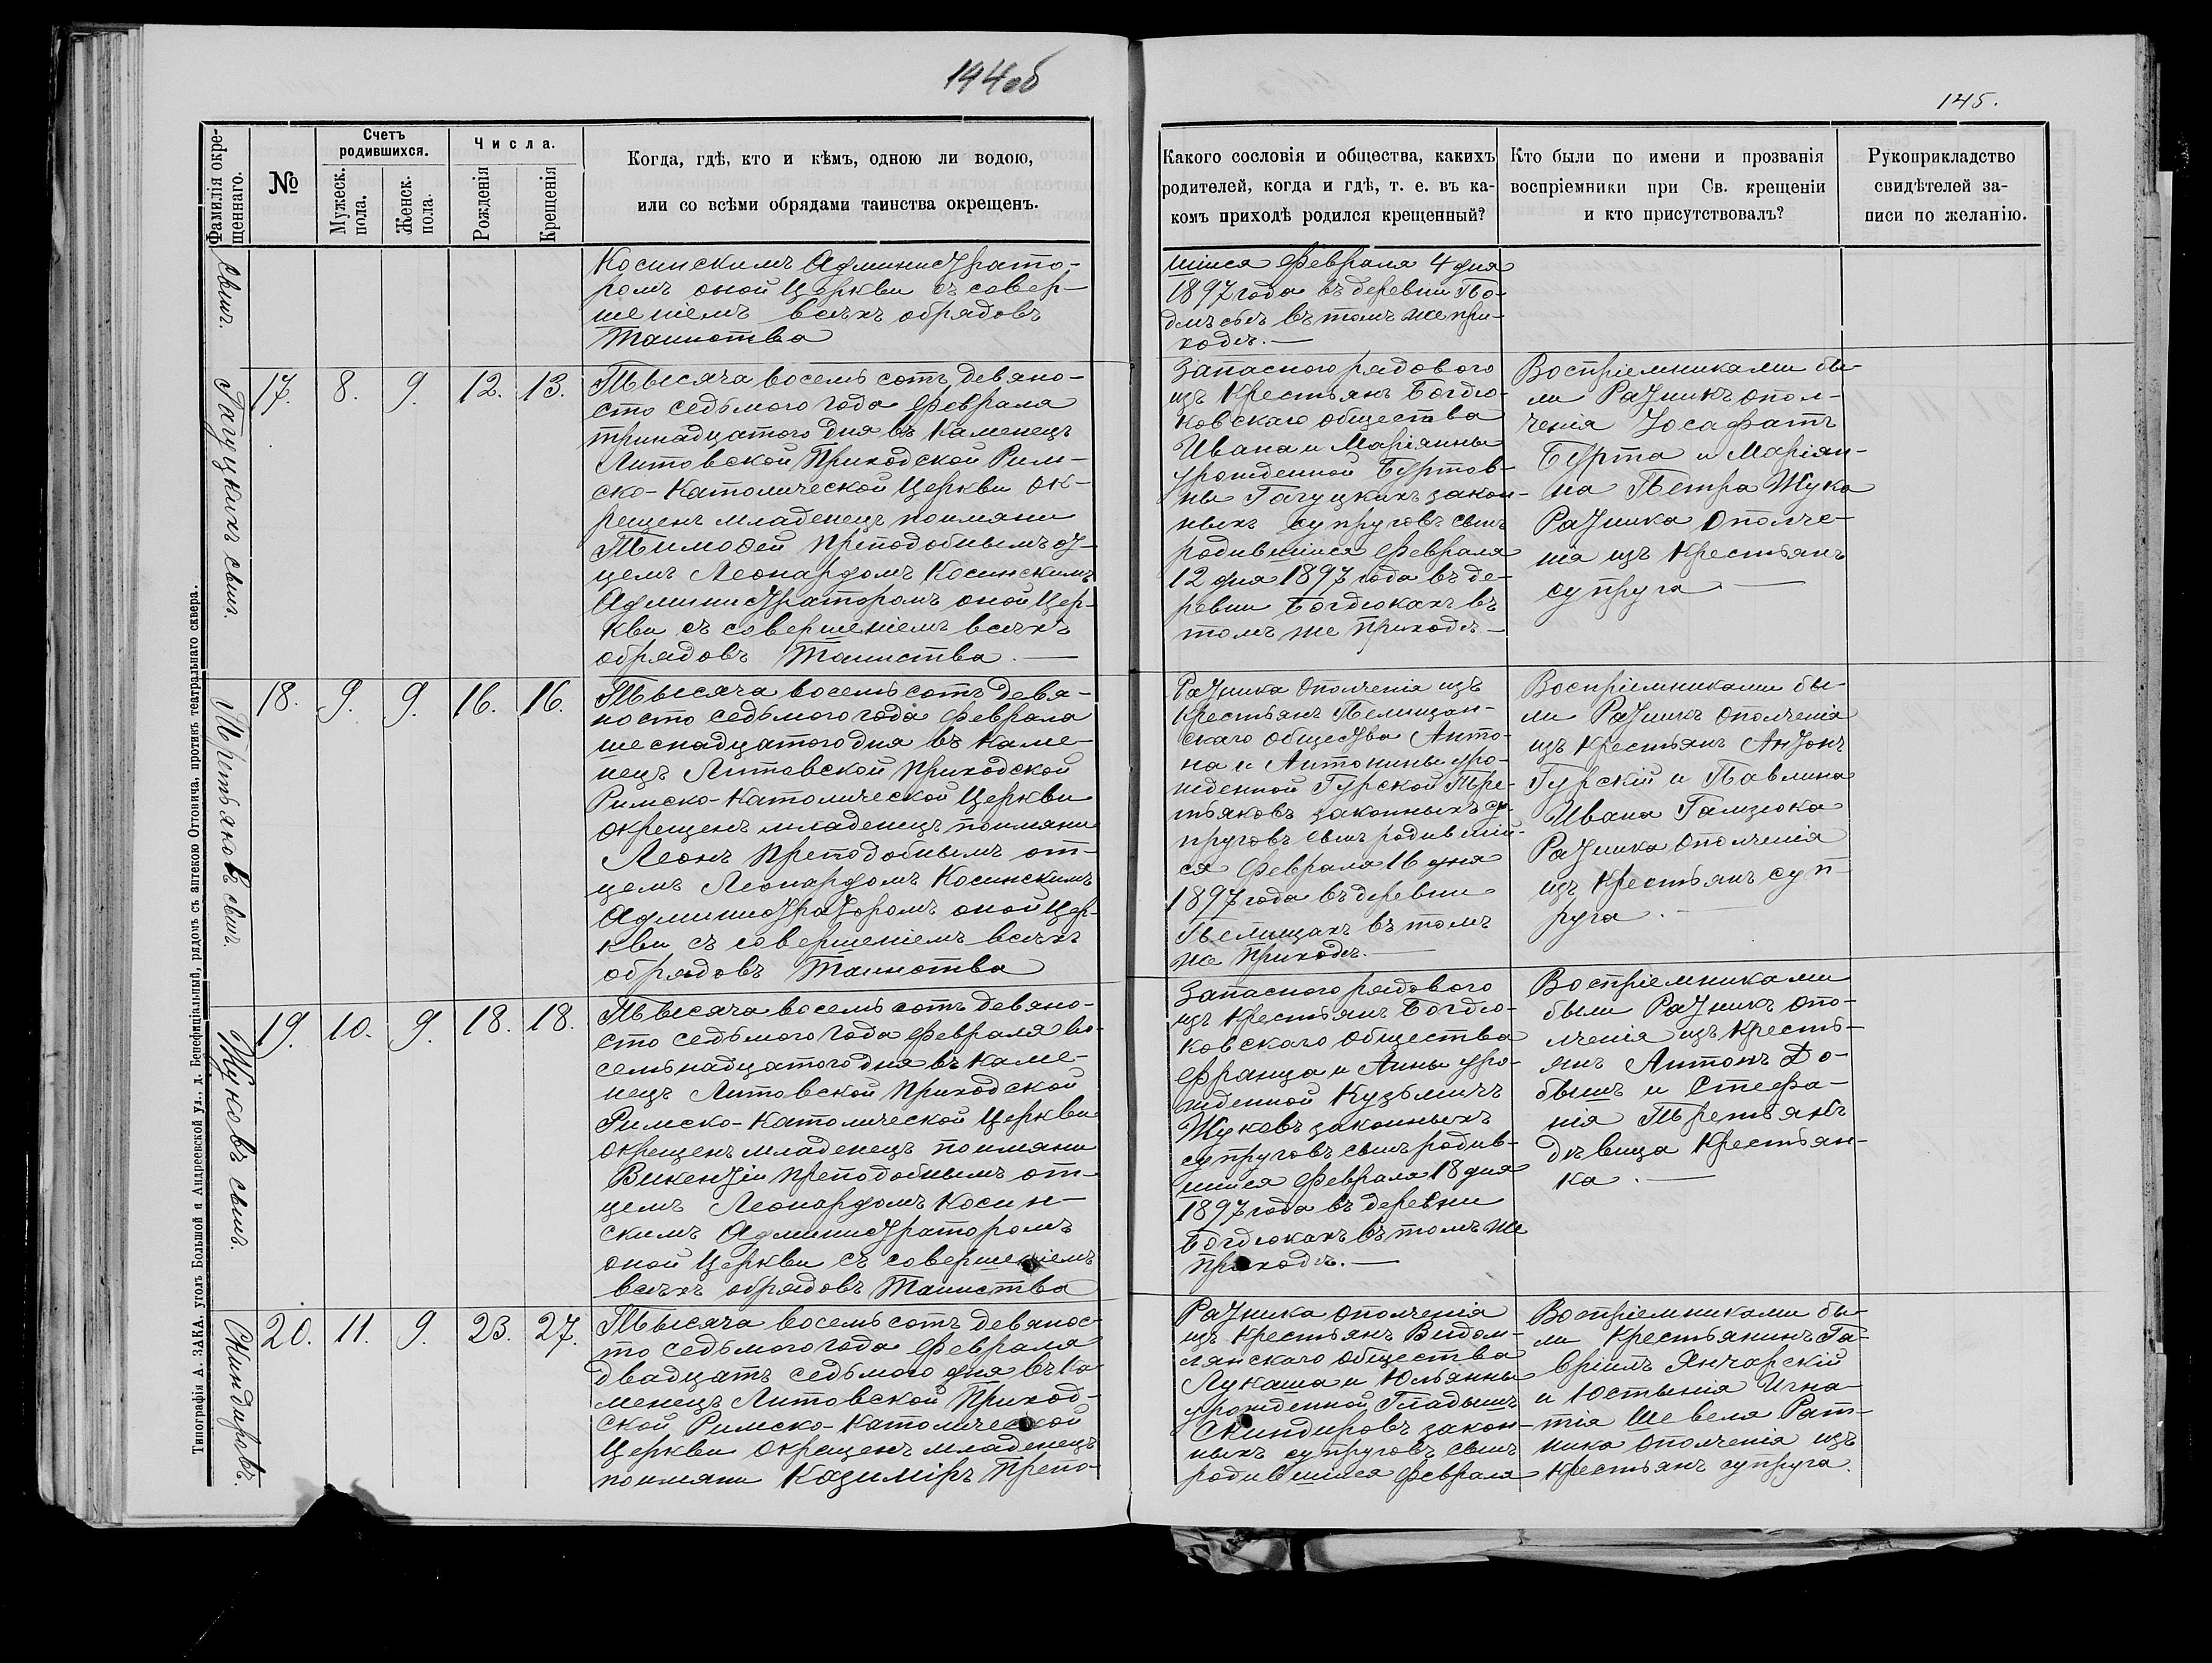 144об
145.
Фамилія окре-
щеннаго.
№
Счетъ
родившихся.
Мужеск.
пола.
Женск.
пола.
Числа.
Рожденія
Крещенія
Когда, гдѣ, кто и кѣмъ, одною ли водою,
или со всѣми обрядами таинства окрещенъ.
Какого сословія и общества, какихъ
родителей, когда и гдѣ, т. е. въ ка-
комъ приходѣ родился крещенный?
Кто были по имени и прозванія
воспріемники при Св. крещеніи
и кто присутствовалъ?
Рукоприкладство
свидѣтелей за-
писи по желанію.
сынъ.
Косинскимъ Администрато-
ромъ оной Церкви съ совер-
шеніемъ всѣхъ обрядовъ
Таинства
шійся Февраля 4 дня
1897 года въ деревни
въ томъ же при-
ходѣ.
Гагуцкихъ сынъ.
17.
8.
9.
12.
13.
Тысяча восемьсотъ девяно-
сто седьмого года Февраля
тринадцатого дня въ Каменецъ
Литовской Приходской Рим-
ско-Католической Церкви ок-
рещенъ младенецъ поимяни
Тимофей Преподобнымъ от-
цемъ Леонардомъ Косинскимъ
Администраторомъ оной Цер-
кви съ совершеніемъ всѣхъ
обрядовъ Таинства.
Запасного рядового
изъ Крестьянъ Богдю-
ковскаго общества
Ивана и Маріянны
урожденной Буртов-
ны Гагуцкихъ закон-
ныхъ супруговъ сынъ
родившійся Февраля
12 дня 1897 года въ де-
ревни Богдюкахъ въ
томъ же Приходѣ
Воспріемниками бы-
ли Ратникъ опол-
ченія Іосафатъ
Бурта и Маріян-
на Петра Жука
Ратника Ополче-
нія изъ Крестьянъ
супруга
Третьяковъ сынъ.
18.
9.
9.
16.
16.
Тысяча восемьсотъ девя-
носто седьмого года Февраля
шеснадцатого дня въ Каме-
нецъ Литовской Приходской
Римско-Католической Церкви
окрещенъ младенецъ поимяни
Леонъ Преподобнымъ от-
цемъ Леонардомъ Косинскимъ
Администраторомъ оной Цер-
кви съ совершеніемъ всѣхъ
обрядовъ Таинства
Ратника Ополченія изъ
Крестьянъ Пелищан-
скаго общества Анто-
на и Антонины уро-
жденной Гурской Тре-
тьяковъ законныхъ су-
пруговъ сынъ родивший-
ся Февраля 16 дня
1897 года въ деревни
Пелищахъ въ томъ
же Приходѣ.
Воспріемниками бы-
ли Ратникъ Ополченія
изъ Крестьянъ Антонъ
Гурскій и Павлина
Ивана Гамзюка
Ратника Ополченія
изъ Крестьянъ суп-
руга.
Жуковъ сынъ.
19.
10.
9.
18.
18.
Тысяча восемьсотъ девяно-
сто седьмого года Февраля во-
семьнадцатого дня въ Каме-
нецъ Литовской Приходской
Римско-Католической Церкви
окрещенъ младенецъ поимяни
Викентій Преподобнымъ от-
цемъ Леонардомъ Косин-
скимъ Администраторомъ
оной Церкви съ совершеніемъ
всѣхъ обрядовъ Таинства
Запасного рядового
изъ Крестьянъ Богдю-
ковскаго Общества
Франца и Анны уро-
жденной Кузьмичъ
Жуковъ законныхъ
супруговъ сынъ родив-
шійся Февраля 18 дня
1897 года въ деревни
Богдюкахъ въ томъ же
Приходѣ.
Воспріемниками
были Ратникъ Опо-
лченія изъ Кресть-
янъ Антонъ До-
бышъ и Стефа-
нія Третьякъ
дѣвица Крестьян-
ка.
Скиндировъ.
20.
11.
9.
23.
27.
Тысяча восемьсотъ девянос-
то седьмого года Февраля
двадцать седьмого дня въ Ка-
менецъ Литовской Приход-
ской Римско-Католической
Церкви окрещенъ младенецъ
поимяни Казиміръ Препо-
Ратника Ополченія
изъ Крестьянъ Видом-
лянскаго общества
Лукаша и Юльянны
урожденной Гладышъ
Скиндировъ закон-
ныхъ супруговъ сынъ
родившійся Февраля
Воспріемниками бы-
ли Крестьянинъ Га-
вріилъ Янчарскій
и Юстынія Игна-
тія Шевеля Рат-
ника Ополченія изъ
Крестьянъ супруга.
Типографія А. ЗАКА. уголъ Большой и Андреевской ул., д. Бенефиціальный, рядомъ съ аптекою Оттовича, противъ театральнаго сквера.